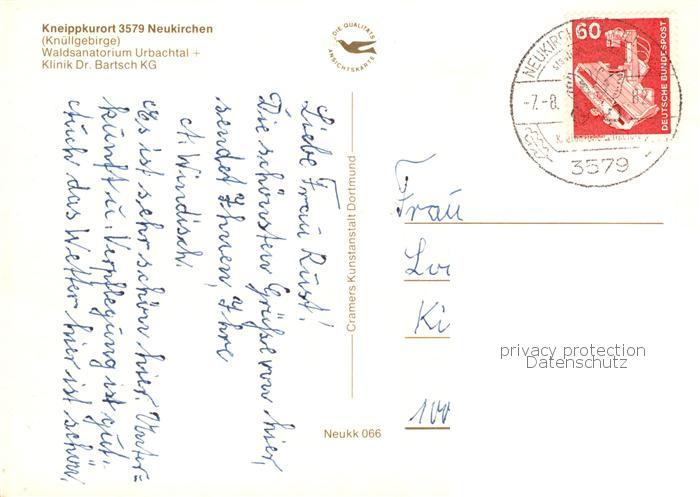 Kneippkurort 3579 Neukirchen
(Knüllgebirge)
Waldsanatorium Urbachtal +
Klinik Dr. Bartsch KG
DIE QUALITÄTS
ANSICHTSKARTE
60
DEUTSCHE BUNDESPOST
NEUKIRCH
-7.-8. 82
3579
Liebe Frau Rust!
Die schönsten Grüße von hier,
sendet Ihnen, Ihre
A. Windisch.
Es ist sehr schön hier. Unter=
kunft u. Verpflegung ist gut.
Auch das Wetter hier ist schön.
Cramers Kunstanstalt Dortmund
Neukk 066
Frau
Lu
Ki
100
privacy protection
Datenschutz